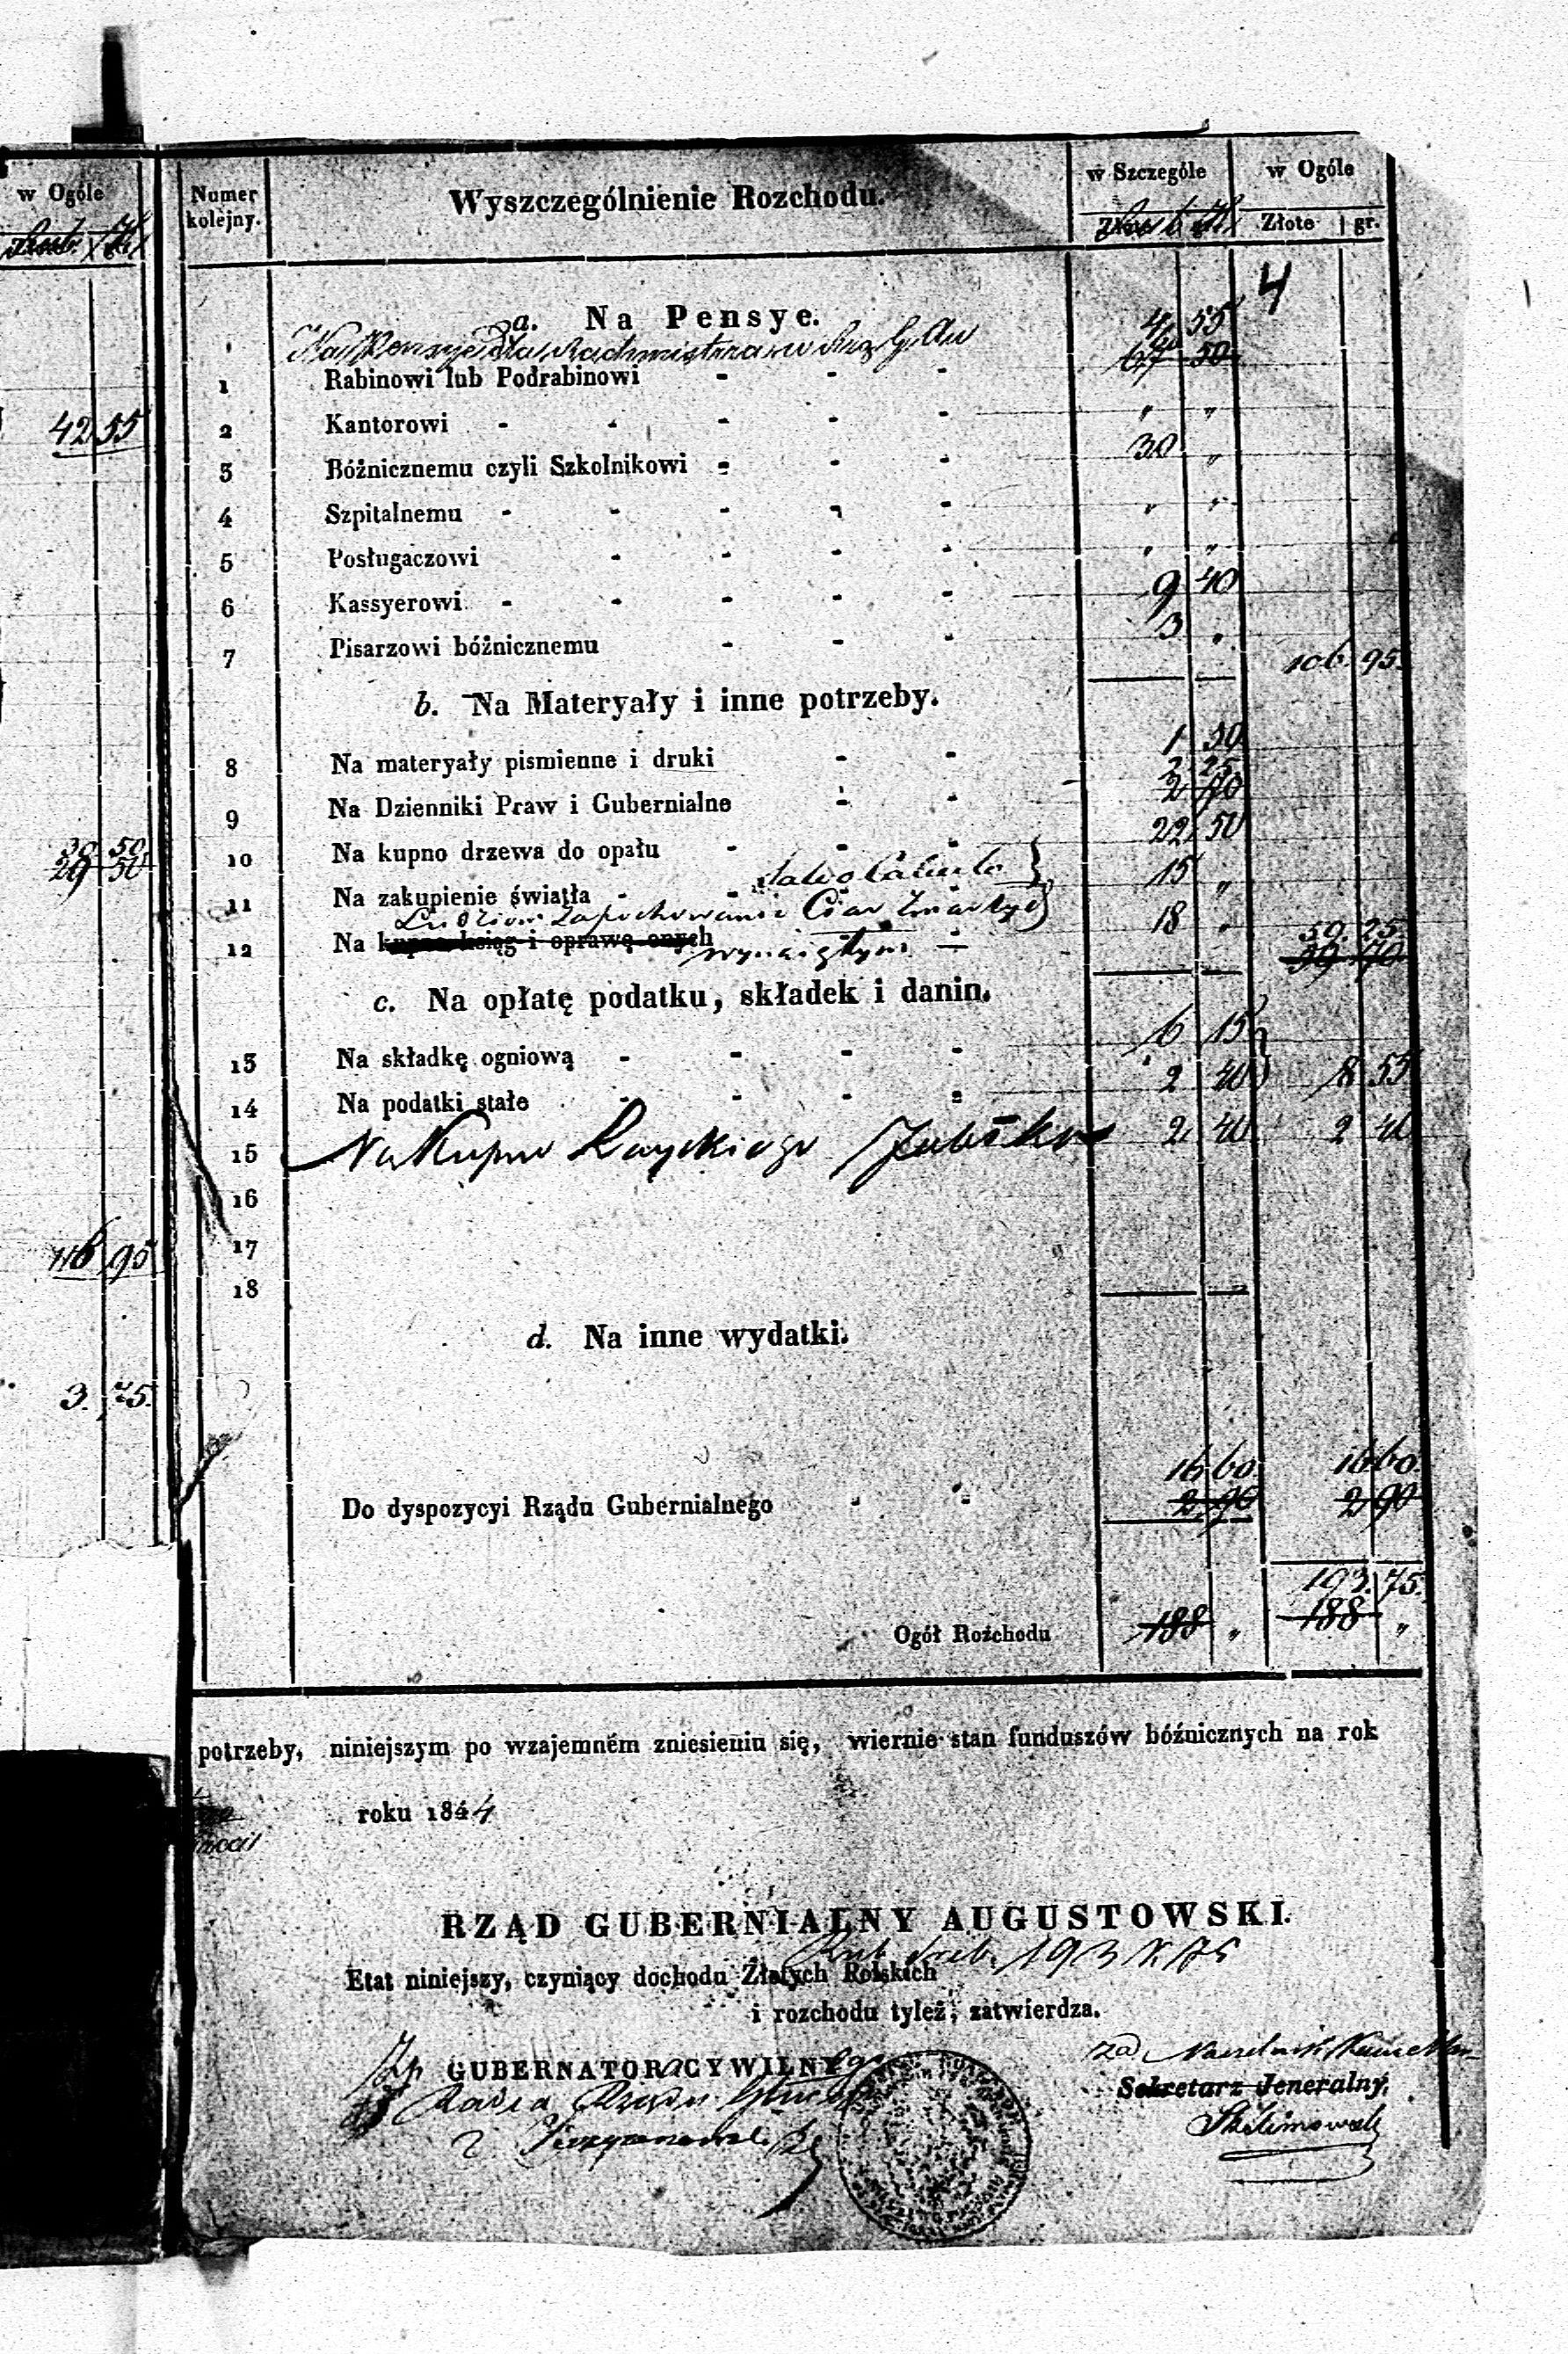 w Ogóle
42 55
30 50
29 50
116 95
3. 75.
Numer kolejny. Wyszczególnienie Rozchodu. w Szczególe w Ogóle
Złote gr.
4
a. Na Pensye.
Na Pensye dla Rachmistrza w 4 55
1 Rabinowi lub Podrabinowi - - - 67 50
2 Kantorowi - - - - - " "
3 Bóżnicznemu czyli Szkolnikowi - - - 30 "
4 Szpitalnemu - - - - - " "
5 Posługaczowi - - - - " "
6 Kassyerowi - - - - - 9 40
7 Pisarzowi bóżnicznemu - - - 3 " 106. 95.
b. Na Materyały i inne potrzeby.
8 Na materyały pismienne i druki - - 1 50
2 25
9 Na Dzienniki Praw i Gubernialne - - 2 70
10 Na kupno drzewa do opału - - - 22 50
11 Na zakupienie światła - - 15 "
Ludziom za pochowanie Ciał Zmarłych
12 Na kupno ksiąg i oprawę onych wynajętym - 18 " 59. 25.
59 70
c. Na opłatę podatku, składek i danin.
13 Na składkę ogniową - - - - 6 15
14 Na podatki stałe - - - - 2 40 8 55
15 Na Kupno 2 40 2 40
16
17
18
d. Na inne wydatki.
16 60 16 60.
Do dyspozycyi Rządu Gubernialnego - - 2 90 2 90
193. 75.
Ogół Rozchodu 188 " 188 "
potrzeby, niniejszym po wzajemném zniesieniu się, wiernie stan funduszów bóżnicznych na rok
roku 1844
RZĄD GUBERNIALNY AUGUSTOWSKI.
Rub. sreb. 193 K 75
Etat niniejszy, czyniący dochodu Złotych Polskich
i rozchodu tyleż, zatwierdza.
GUBERNATOR CYWILNY
za Naczelnik Kancellar
Sekretarz Jeneralny,
Radca Rządu